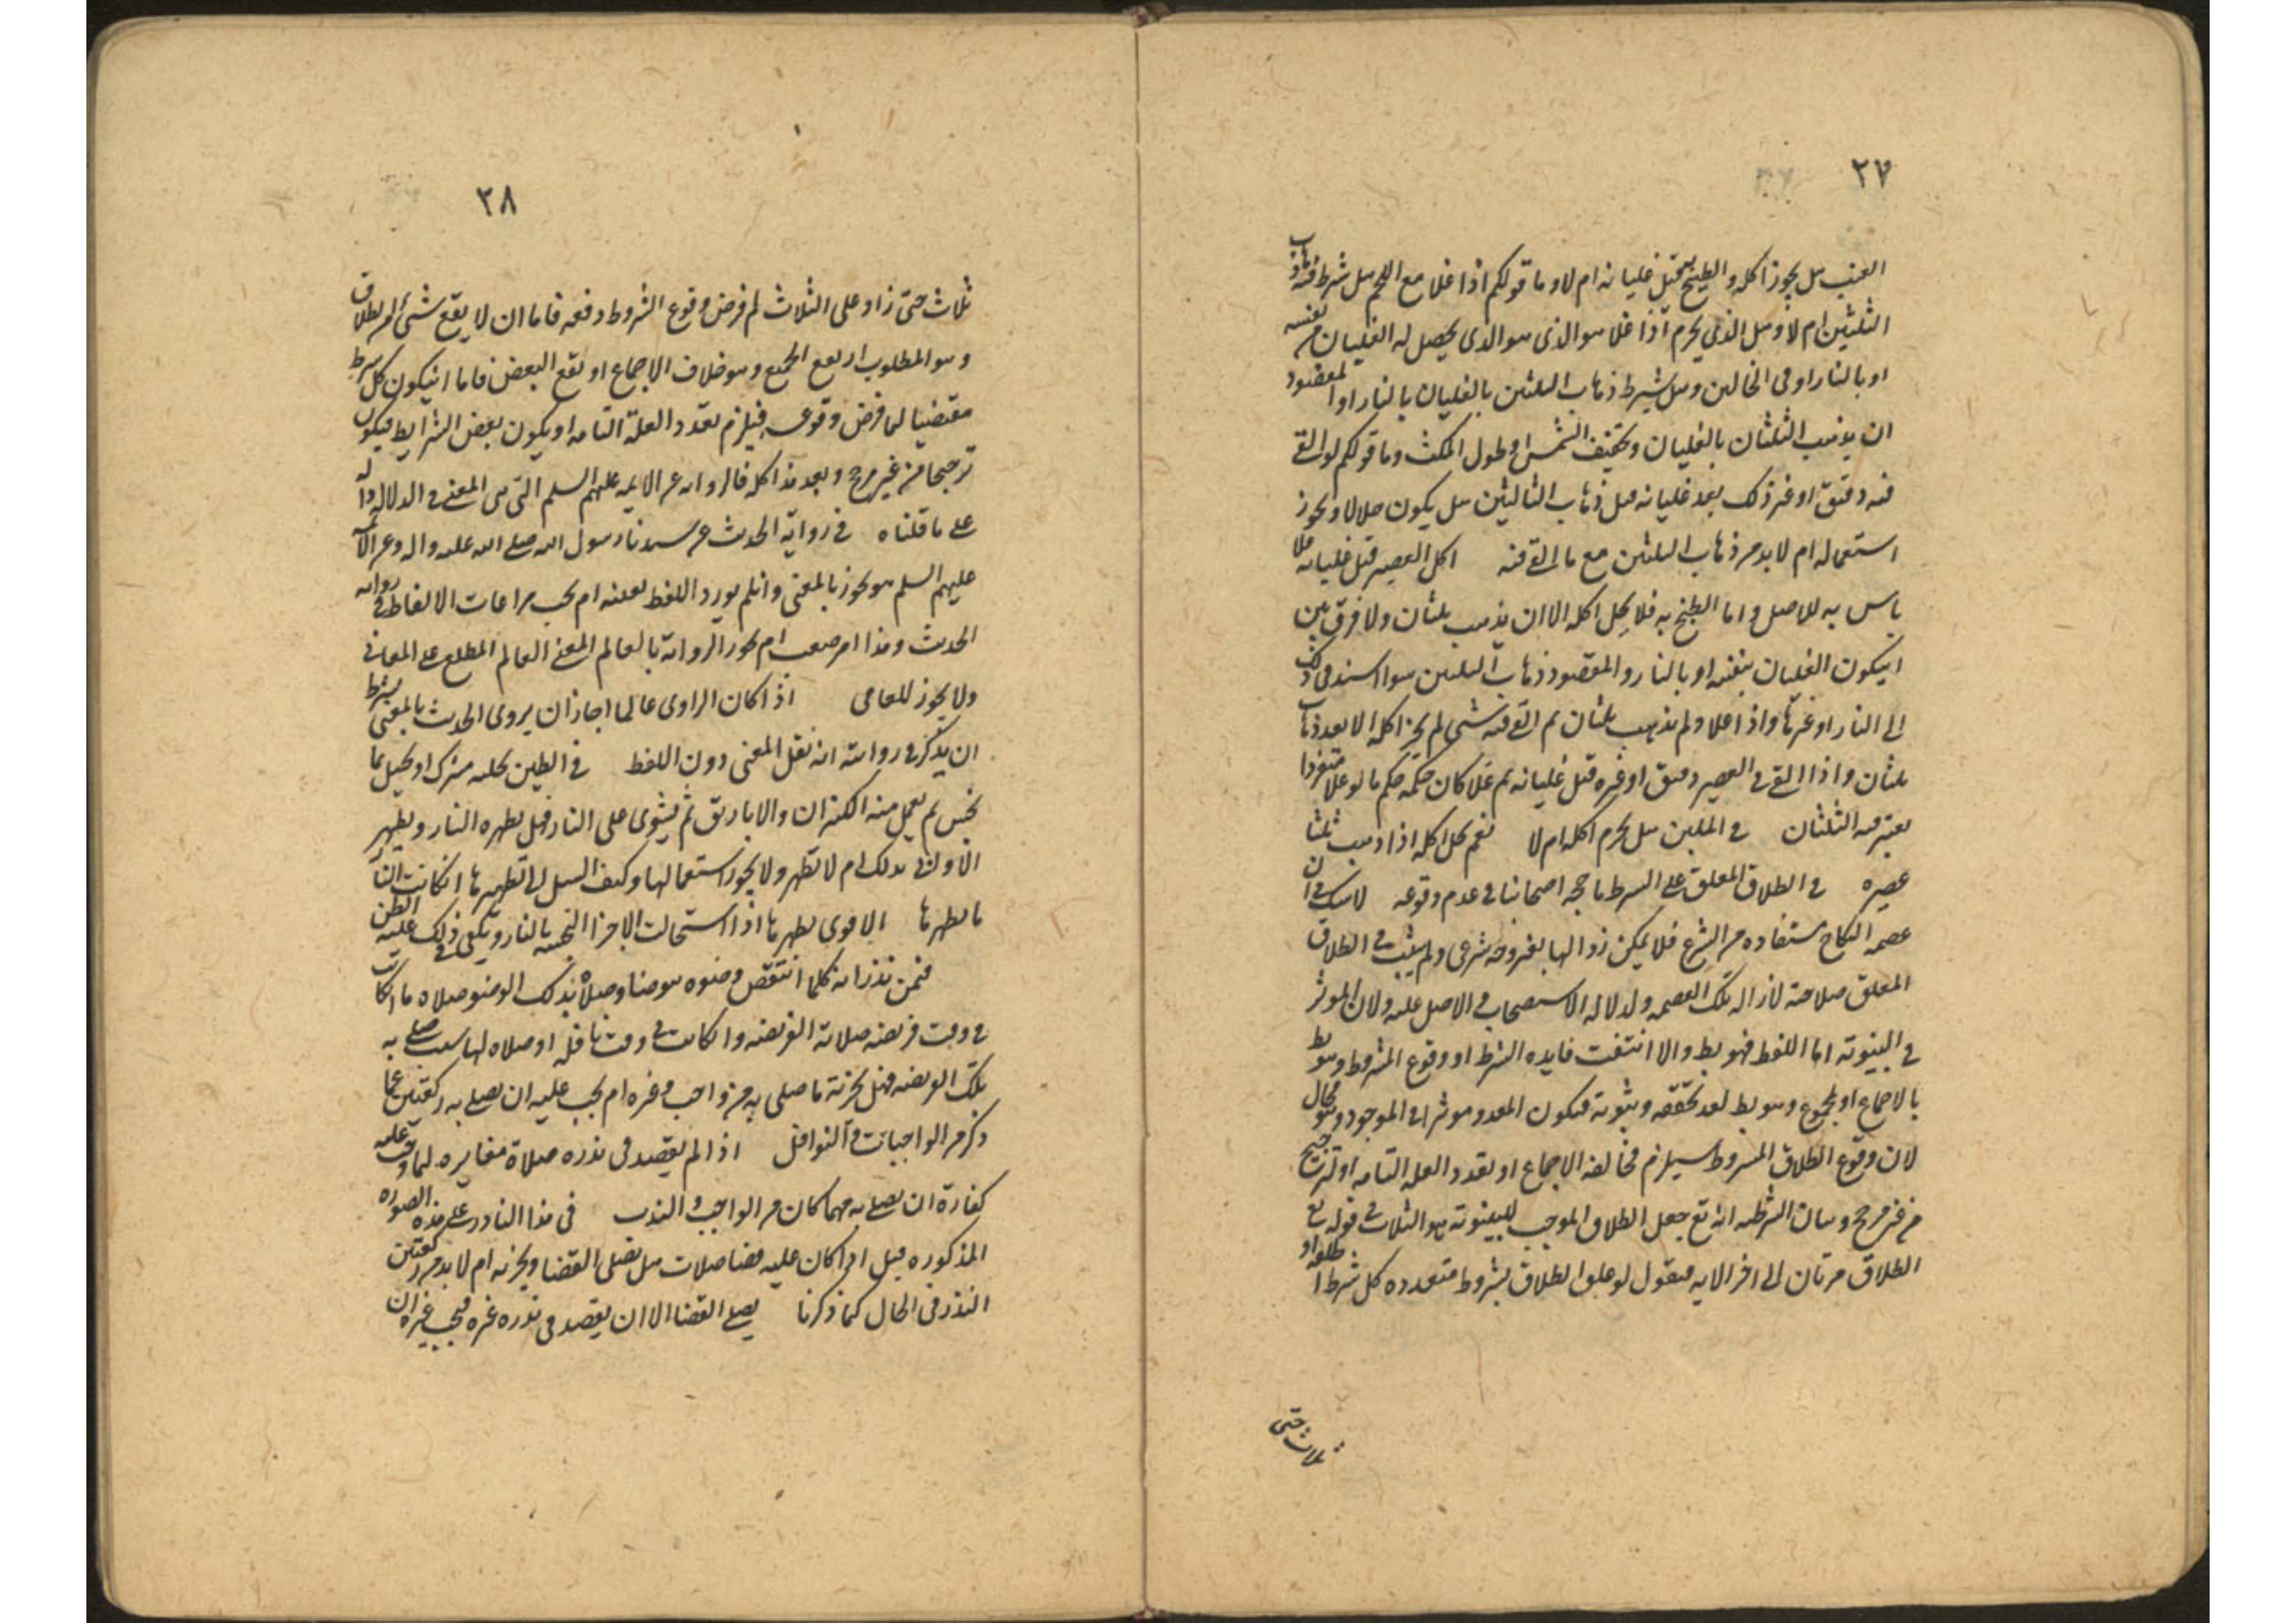 ٢٧
العنب هل يجوز اكله والطبخ قبل غليانه ام لا وما قولكم اذا غلا مع اللحم هل شرط فيه ذهاب
الثلثين ام لا وهل الذى يحرم اذا غلا هو الذى هو الذى يحصل له الغليان من نفسه
او بالنار او فى الحالين وهل يشترط ذهاب الثلثين بالغليان بالنار او المقصود
ان يذهب الثلثان بالغليان وتجفيف الشمس او طول المكث وما قولكم لو القى
فيه دقيق او غير ذلك بعد غليانه قبل ذهاب الثالثين هل يكون حلالا ويجوز
استعماله ام لا بد من ذهاب الثلثين مع ما القى فيه اكل العصير قبل غليانه فلا
باس به للاصل واما الطبخ به فلا يحل اكله الا ان يذهب ثلثان ولا فرق بين
ان يكون الغليان بنفسه او بالنار والمقصود ذهاب الثلثين سوا استند فى ذلك
الى النار او غيرها واذا غلا ولم يذهب ثلثان ثم القى فيه شى لم يجز اكله الا بعد ذهاب
ثلثان واذا القى فى العصير دقيق او غيره قبل غليانه ثم غلا كان حكمه حكم ما لو غلا منفردا
يعتبر فيه الثلثان فى الملبن هل يحرم اكله ام لا نعم يحل اكله اذا ذهب ثلثا
عصيره فى الطلاق المعلق على الشرط ما حجة اصحابنا فى عدم وقوعه لا شك فى ان
عصمة النكاح مستفاده من الشرع فلا يمكن زوالها بغير وجه شرعى ولم يثبت فى الطلاق
المعلق صلاحية لازاله تلك العصمه ولدلاله الاستصحاب فى الاصل عليه ولان الموثر
فى البينونة اما اللفظ فهو بط والا انتفت فايده الشرط او وقوع الشروط وهو بط
بالاجماع او المجموع وهو بط لعد تحققه وثبوته فيكون المعدو موثرا فى الموجود وهو محال
لان وقوع الطلاق المشروط يستلزم مخالفه الاجماع او تعدد العله التامه او ترجيح
من غير مرجح وبيان الشرطيه انه تع جعل الطلاق الموجب للبينونة هو الثلاث فى قوله تع
الطلاق مرتان الى اخر الايه فنقول لو علق الطلاق بشروط متعدده كل شرط اطلقه او
ثلاث حتى
٢٨
ثلاث حتى زاد على الثلاث ثم فرض وقوع الشروط دفعه فاما ان لا يقع شئ من الطلاق
وهو المطلوب او يقع الجميع وهو خلاف الاجماع او تقع البعض فاما ان يكون كل شرط
مقتضيا لما فرض وقوعه فيلزم تعدد العلة التامه او يكون بعض الشرايط فيكون
ترجيحا من غير مرجح وبعد هذا كله فالروايه عن الايمه عليهم السلم التى هى المعنى فى الدلاله داله
على ما قلناه فى رواية الحديث عن سيدنا رسول الله صلى الله عليه واله وعن الائمة
عليهم السلم هو يجوز بالمعنى وان لم يورد اللفظ بعينه ام يجب مراعات الالفاظ فى رواية
الحديث وهذا امر صعب ام يجوز الرواية بالعالم المعنى العالم المطلع على المعانى
ولا يجوز للعامى اذا كان الراوى عالما جاز ان يروى الحديث بالمعنى بشرط
ان يذكر فى روايته انه نقل المعنى دون اللفظ فى الطين يحله مشرك او يحيل بما
نجس ثم يعمل منه الكيزان والاباريق ثم يشوى على النار فهل يطهره النار ويطهر
الاوانى بذلك ام لا تطهر ولا يجوز استعمالها وكيف السبيل الى تطهيرها ان كانت النار
ما تطهرها الاقوى تطهرها اذا استحالت الاجزا النجسه بالنار ويكفى فى ذلك غلبه الظن
فيمن نذر انه كلما انتقض وضوه توضا وصلا بذلك الوضو صلاه ما ان كانت
فى وقت فريضه صلا به الفريضه وان كانت فى وقت نافله او صلاه لها سبب صلى به
تلك الفريضه فهل يجزئه ما صلى به من واجب وغيره ام يجب عليه ان يصلى به ركعتين عما
ذكر من الواجبات والنوافل اذا لم يقصد فى نذره صلاة مغايره لما وجبت عليه
كفارة ان يصلى به مهما كان من الواجب والندب فى هذا الناذر على هذه الصوره
المذكوره قبل اذا كان عليه قضا صلات هل يصلى القضا ويجزيه ام لا بد من ركعتين
النذر فى الحال كما ذكرنا يصلى القضا الا ان يقصد فى نذره غيره فيجب غيره ان